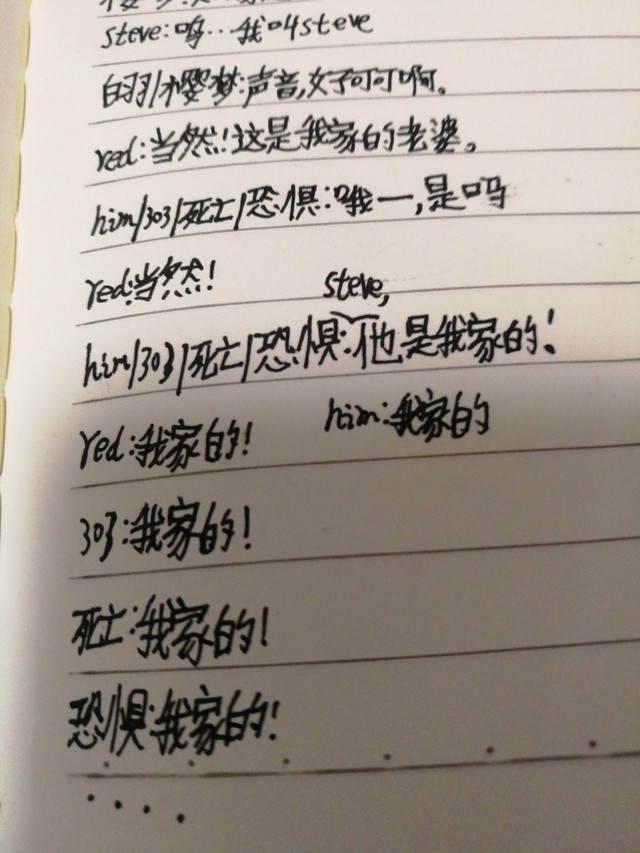 steve:呜…我叫steve
白羽/樱梦:声音,好可可啊。
red:当然!这是我家的老婆。
him/303/死亡/恐惧:哦一,是吗
red:当然!
steve,
him/303/死亡/恐惧:他是我家的!
red:我家的!
him:我家的
303:我家的!
死亡:我家的!
恐惧:我家的!
....